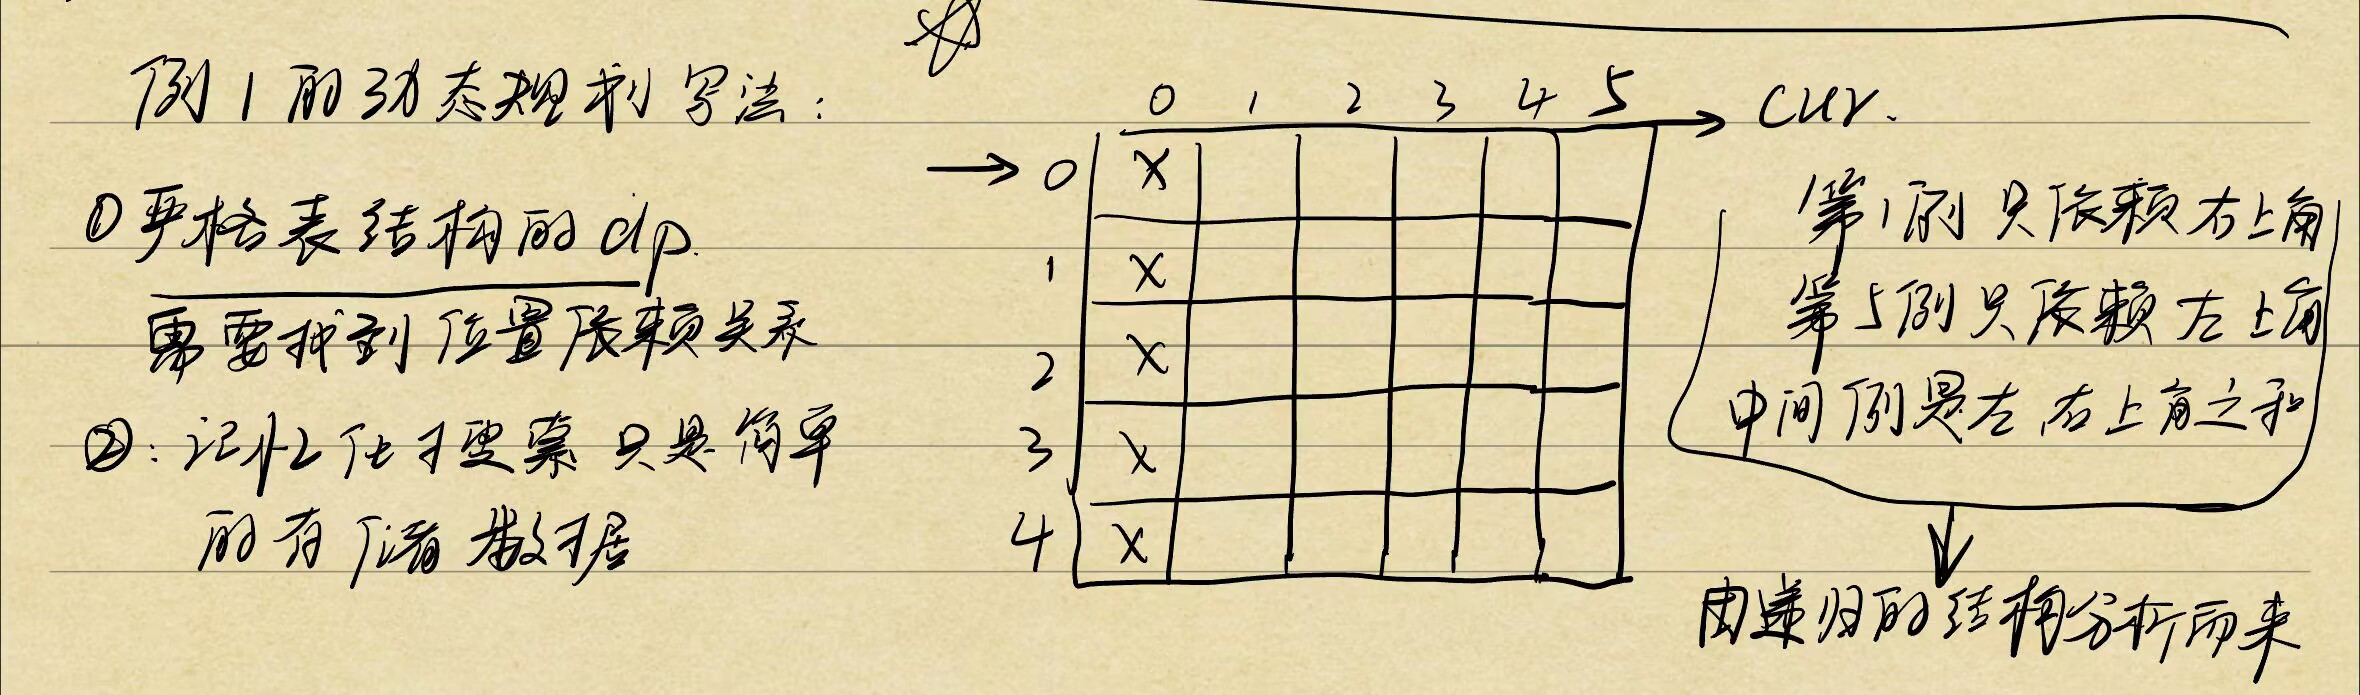 例1的动态规划写法:
①严格表结构的dp.
需要找到位置依赖关系
②:记忆化搜索只是简单
的存储数据
0 1 2 3 4 5 → cur.
→ 0 X
1 X
2 X
3 X
4 X
第1列只依赖右上角
第5列只依赖左上角
中间列是左右上角之和
由递归的结构分析而来